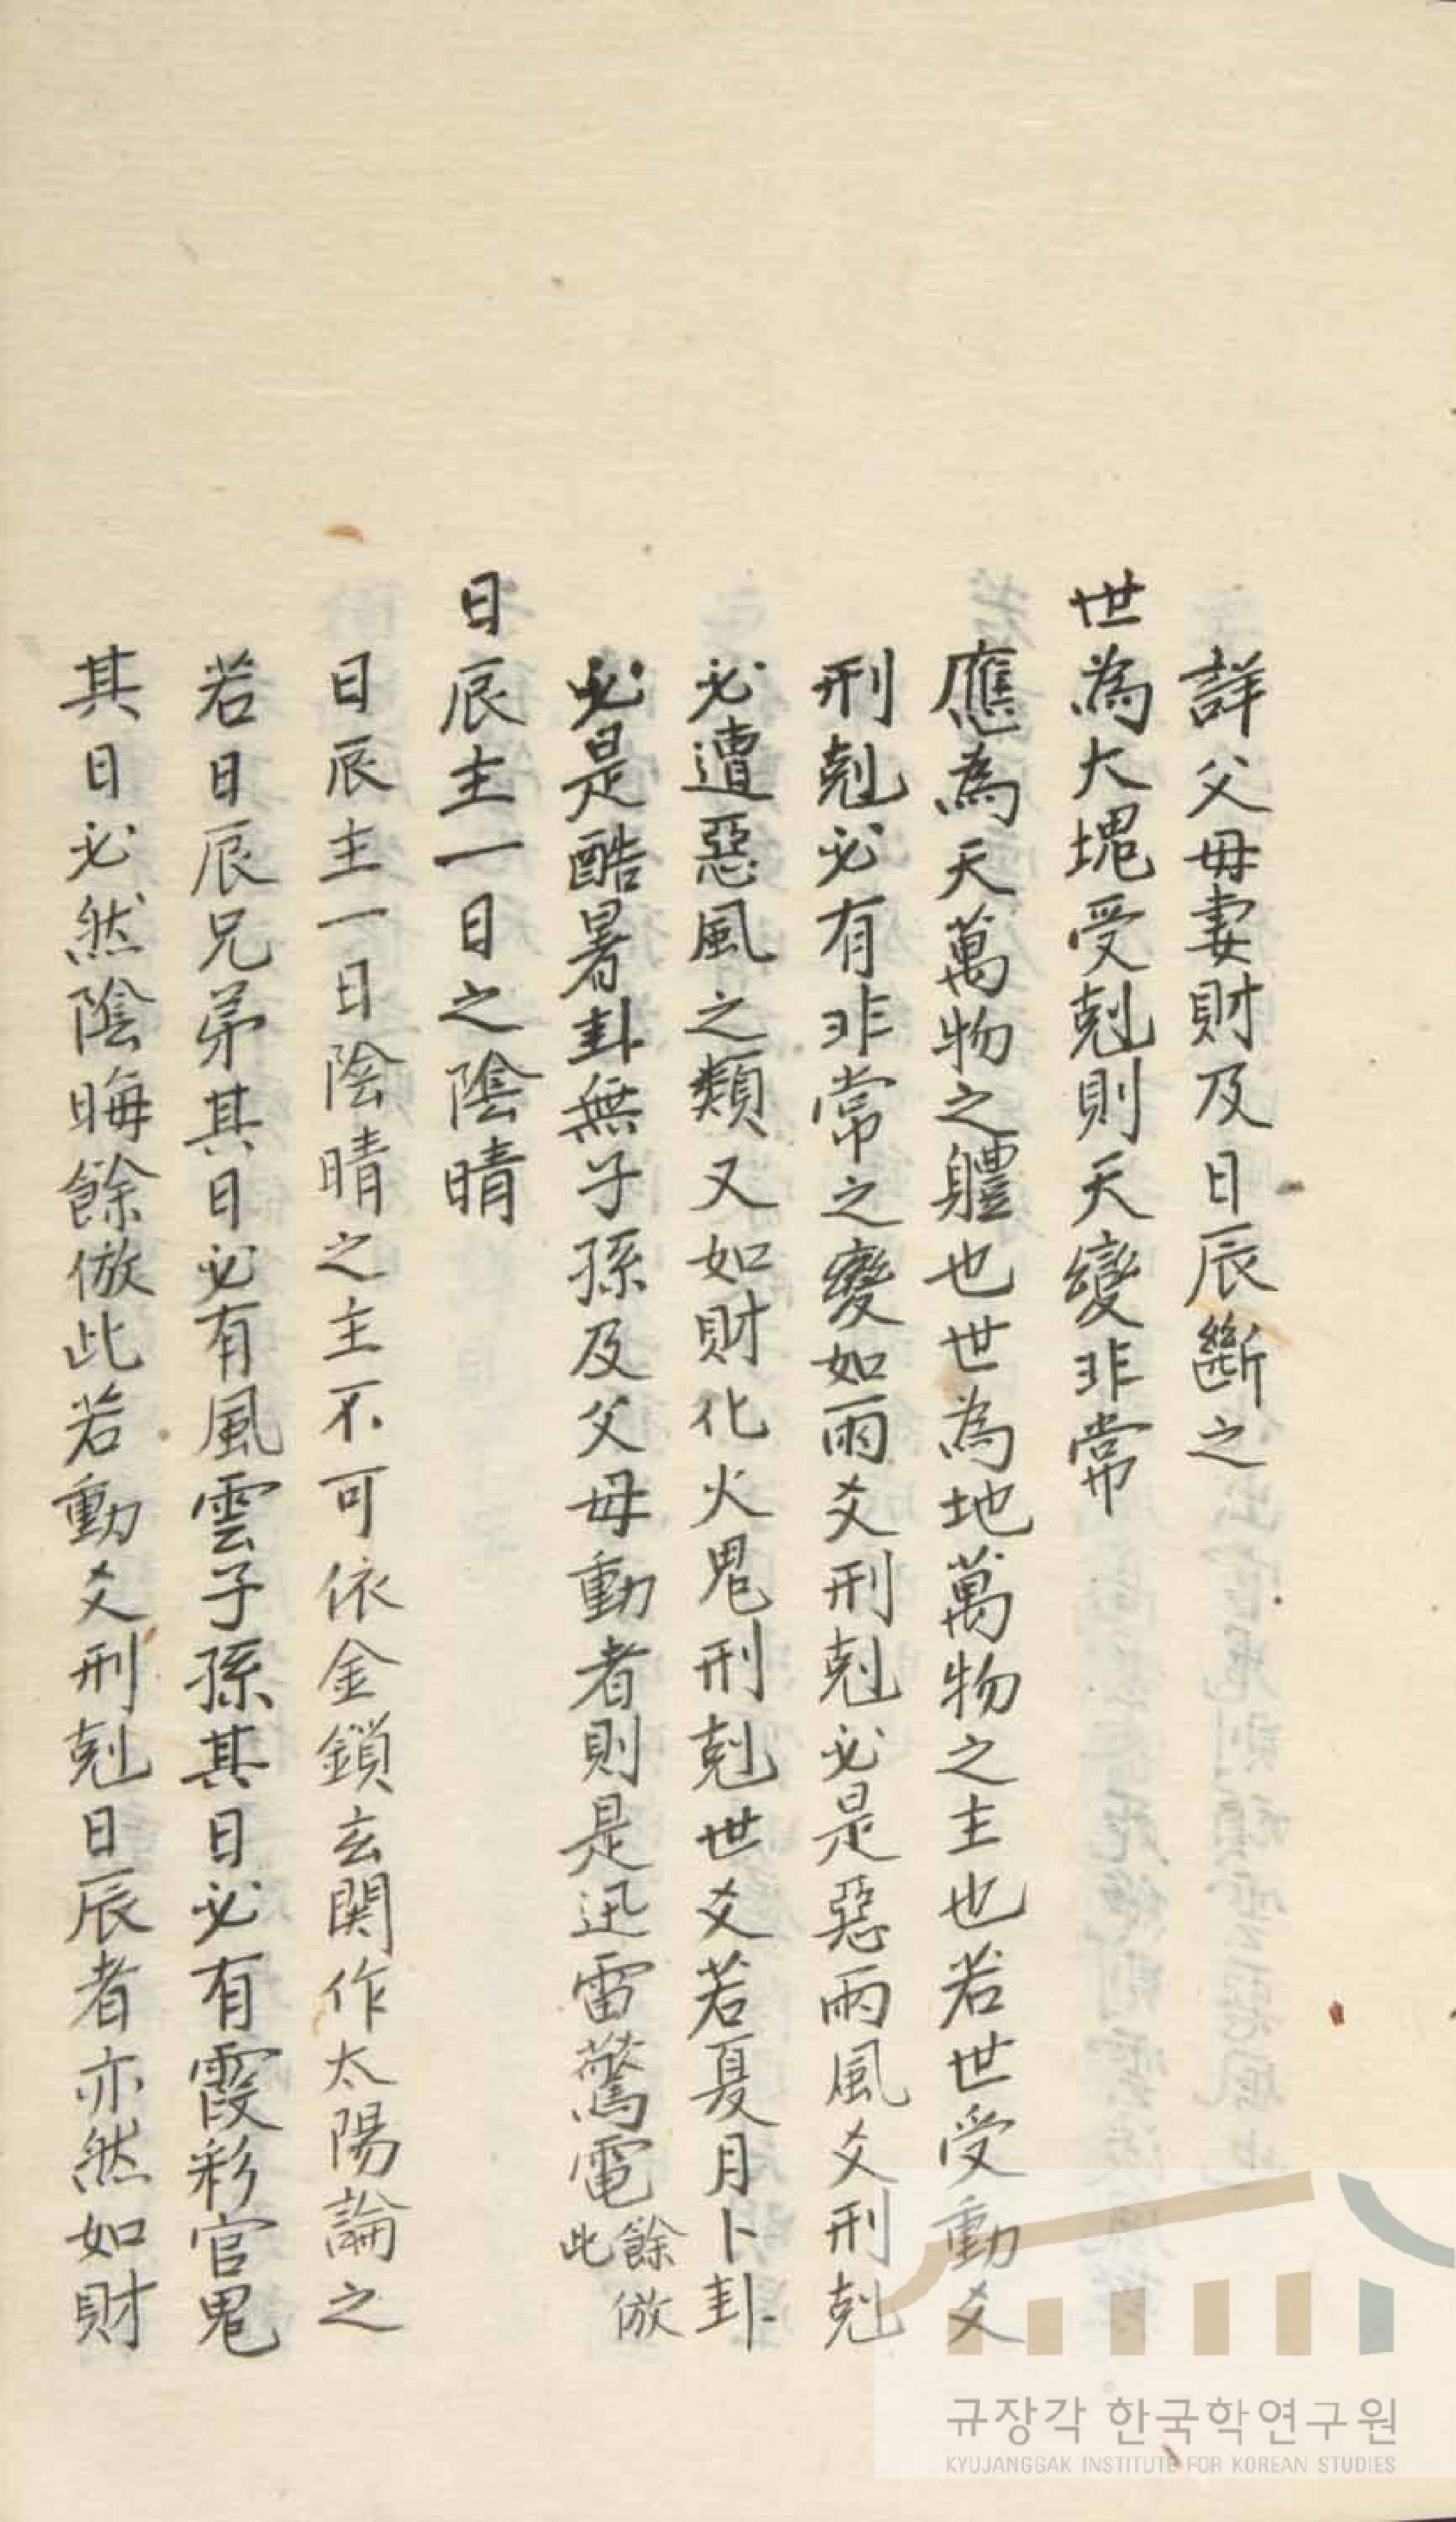 詳父母妻財及日辰斷之
世為大塊受剋則天變非常
應為天萬物之軆也世為地萬物之主也若世受動爻
刑剋必有非常之變如雨爻刑剋必是惡雨風爻刑剋
必遭惡風之類又如財化火鬼刑剋世爻若夏月卜卦
必是酷暑卦無子孫及父母動者則是迅雷驚電餘倣此
日辰主一日之陰晴
日辰主一日陰晴之主不可依金鎖玄関作太陽論之
若日辰兄弟其日必有風雲子孫其日必有霞彩官鬼
其日必然陰晦餘倣此若動爻刑剋日辰者亦然如財
규장각 한국학연구원
KYUJANGGAK INSTITUTE FOR KOREAN STUDIES